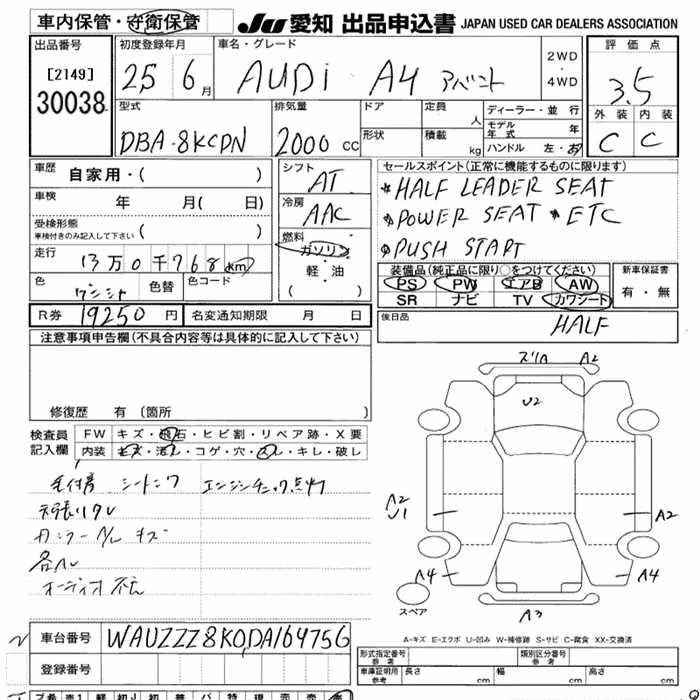 車内保管・守衛保管 JU 愛知 出品申込書 JAPAN USED CAR DEALERS ASSOCIATION
出品番号 初度登録年月 車名・グレード 2WD・4WD 評価点
[2149] 30038 25 6月 AUDi A4 アバント 3.5
型式 排気量 ドア 定員 人 ディーラー・並行 外装 内装
DBA-8KCDN 2000 cc 形状 積載 kg モデル年式 年 C C
ハンドル 左・右
車歴 自家用・( ) シフト AT セールスポイント(正常に機能するものに限ります)
車検 年 月( 日) 冷房 AAC HALF LEADER SEAT
受検形態 POWER SEAT ETC
車検付きのみ記入して下さい ( ) 燃料 PUSH START
走行 13万0千768km ガソリン 軽・油 ( )
装備品(純正品に限り○をつけてください) 新車保証書
色 色替 色コード PS PW エアB AW 有・無
SR ナビ TV カワシート
R券 19250円 名変通知期限 月 日 後日品 HALF
注意事項申告欄(不具合内容等は具体的に記入して下さい)
修復歴 有(箇所
ズリA A2
U2
検査員記入欄 FW キズ・飛石・ヒビ割・リペア跡・X要
内装 キズ・汚レ・コゲ・穴・スレ・キレ・破レ
シートシワ エンジンチェック点灯
A2
U1 A2
A4 A4
スペア A3
A-キズ E-エクボ U-凹み W-補修跡 S-サビ C-腐食 XX-交換済
車台番号 WAUZZZ8K0DA164756
登録番号
形式指定番号 参考 類別区分番号 参考
車庫証明用 参考 長さ cm 幅 cm 高さ cm